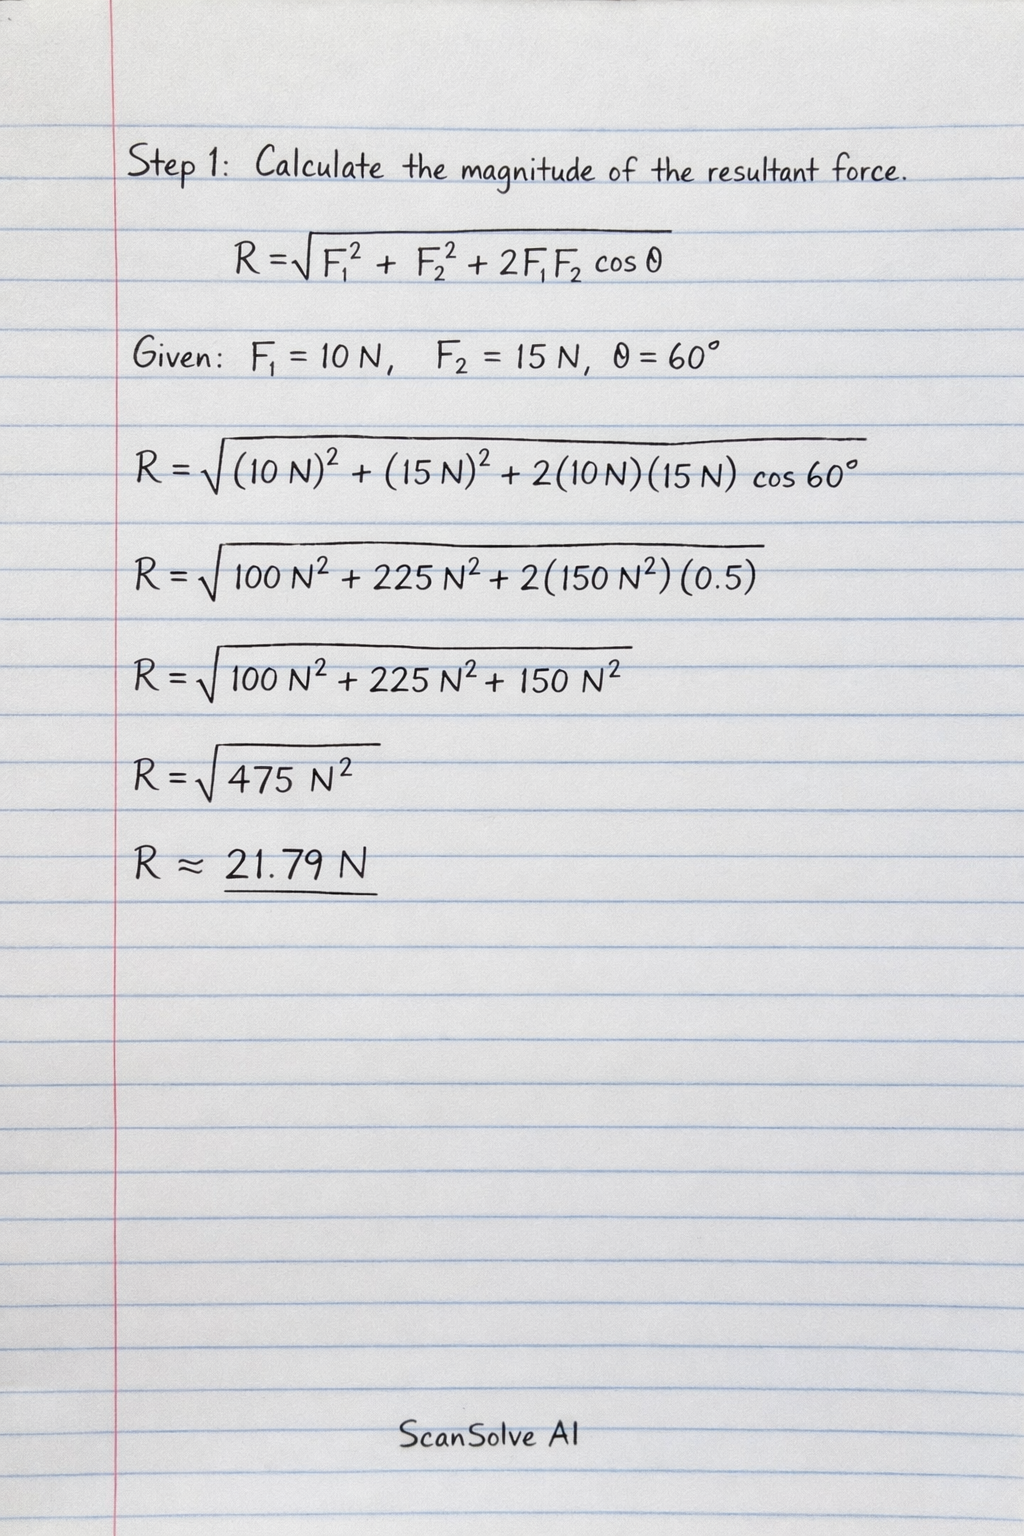 Step 1: Calculate the magnitude of the resultant force.
R = √(F₁² + F₂² + 2F₁F₂ cos θ)
Given: F₁ = 10 N, F₂ = 15 N, θ = 60°
R = √((10 N)² + (15 N)² + 2(10 N)(15 N) cos 60°)
R = √(100 N² + 225 N² + 2(150 N²)(0.5))
R = √(100 N² + 225 N² + 150 N²)
R = √(475 N²)
R ≈ 21.79 N
ScanSolve AI